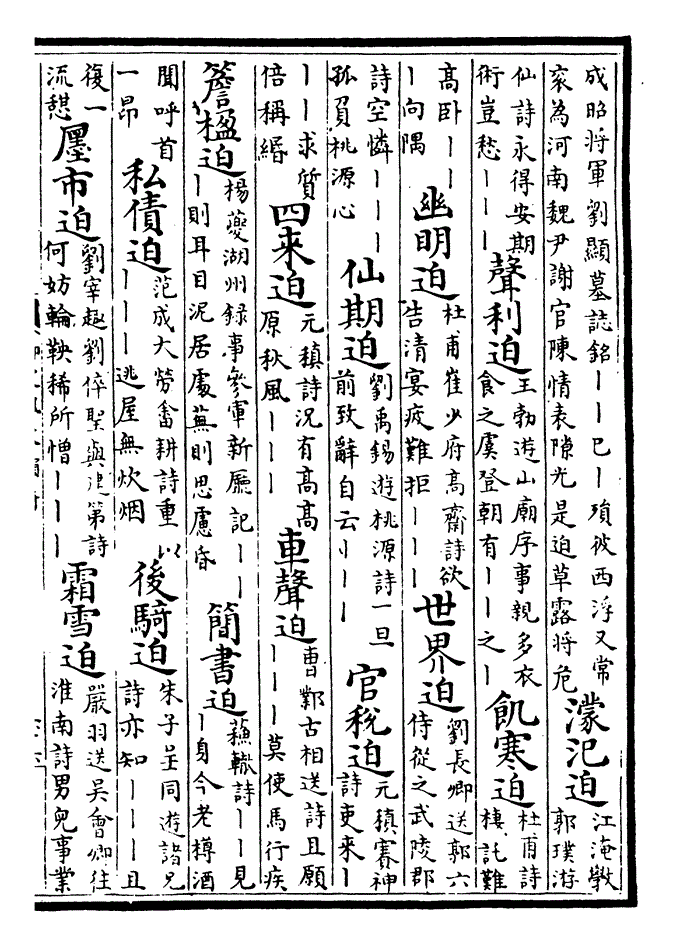 成昭將軍劉顯墓誌銘丨丨巳丨殞彼西浮又常
衮為河南魏尹謝官陳情表隙光是迫草露將危
濛汜迫
江淹斆
郭璞游
仙詩永得安期
術豈愁丨丨丨
聲利迫
王勃遊山廟序事親多衣
食之虞登朝有丨丨之丨
飢寒迫
杜甫詩
棲託難
高卧丨丨
丨向隅
幽明迫
杜甫崔少府高齋詩欲
告清宴疲難拒丨丨丨
世界迫
劉長卿送郭六
侍從之武陵郡
詩空憐丨丨丨
孤負桃源心
仙期迫
劉禹錫遊桃源詩一旦
前致辭自云丨丨丨
官稅迫
元稹賽神
詩吏來丨
丨丨求質
倍稱緡
四來迫
元稹詩況有高高
原秋風丨丨丨
車聲迫
曹鄴古相送詩且願
丨丨丨莫使馬行疾
簷楹迫
楊夔湖州録事參軍新廳記丨丨
丨則耳目泥居處蕪則思慮昏
簡書迫
蘇轍詩丨丨見
丨身今老樽酒
聞呼首
一昂
私債迫
范成大勞畬耕詩重以
丨丨丨逃屋無炊烟
後騎迫
朱子呈同遊諸兄
詩亦知丨丨丨且
復一
流憇
廛市迫
劉宰趣劉倅聖與建第詩
何妨輪鞅稀所憎丨丨丨
霜雪迫
嚴羽送吳會卿往
淮南詩男兒事業